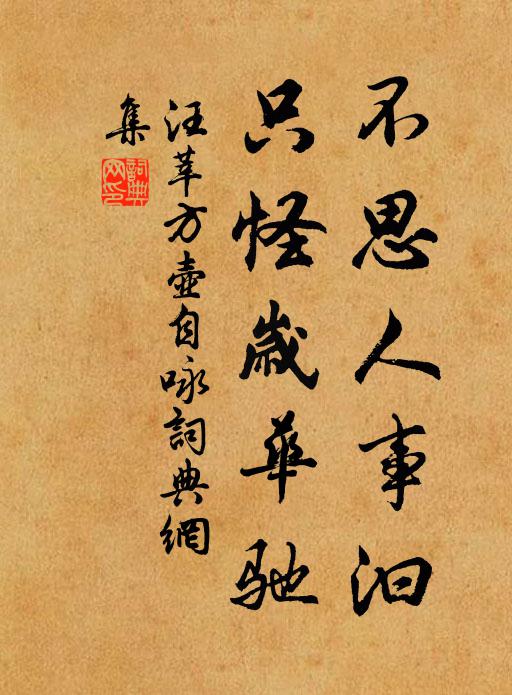 不思人事汩
只怪歲華馳
汪莘方壺自咏詞典網
集
詞典網印